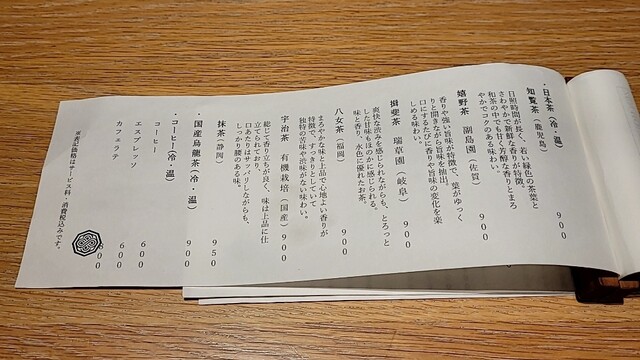 ・日本茶(冷・温)
知覧茶(鹿児島) 900
日照時間が長く、若い緑色の茶葉と
さわやかで新鮮な香りが特徴。
和茶の中でも甘く芳醇な香りとまろ
やかでコクのある味わい。
嬉野茶 副島園(佐賀) 900
香りや強い旨味が特徴で、葉がゆっく
りと開きながら旨味を抽出。
口にするたびに香りや旨味の変化を楽
しめる味わい。
揖斐茶 瑞草園(岐阜) 900
爽快な渋みを感じられながらも、とろっと
した甘味もほのかに感じられる。
味と香り、水色に優れたお茶。
八女茶(福岡) 900
まろやかな味と上品で心地よい香りが
特徴で、すっきりとしていて
独特の苦味や渋味がない味わい。
宇治茶 有機栽培(国産) 900
総じて香り立ちが良く、味は上品に仕
立てられており、
口あたりはサッパリしながらも、
しっかり麺のある味。
抹茶(静岡) 950
・国産烏龍茶(冷・温) 900
・コーヒー(冷・温)
コーヒー 600
エスプレッソ 600
カフェラテ 600
※表記価格はサービス料・消費税込みです。